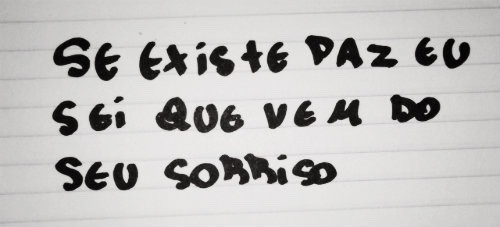 SE EXiSTE PAZ EU
SEi QUE VEM DO
SEU SORRiSO